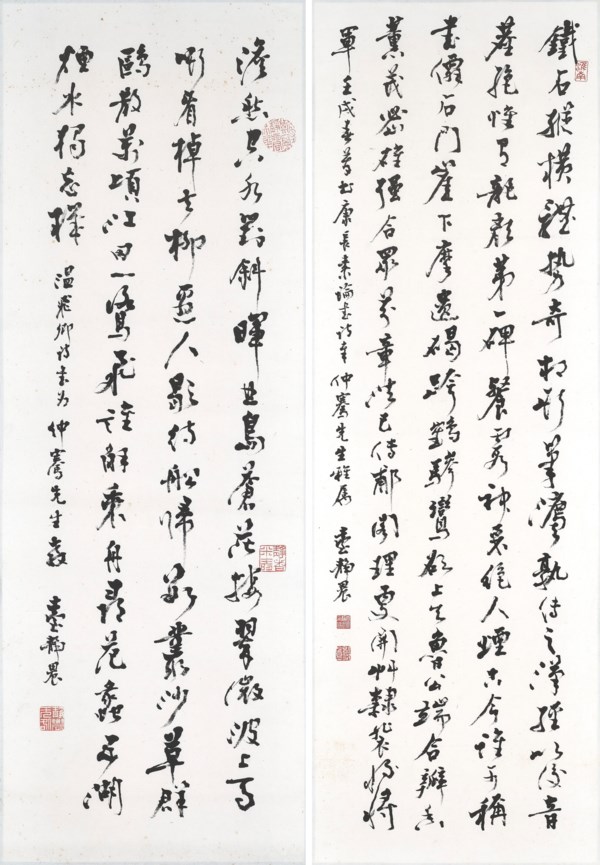 鐵石縱橫體勢奇相斯筆法孰傳之漢經以後音
塵絕惟有龍顏第一碑餐霞神采絕人煙古今誰可稱
書僊石門崖下摩遺碣跨鶴驂鸞欲上天魯公端合瓣香
薰茂密雄強合眾芬章法已傳郙閣理更開艸隸裴將
軍 壬戌春暮書康長素論書詩奉 仲騫先生雅屬 臺靜農
澹然空水對斜暉曲島蒼茫接翠微波上馬
嘶看棹去柳邊人歇待船歸數叢沙草群
鷗散萬頃江田一鷺飛誰解乘舟尋范蠡五湖
煙水獨忘機 溫飛卿詩書為 仲騫先生教 臺靜農